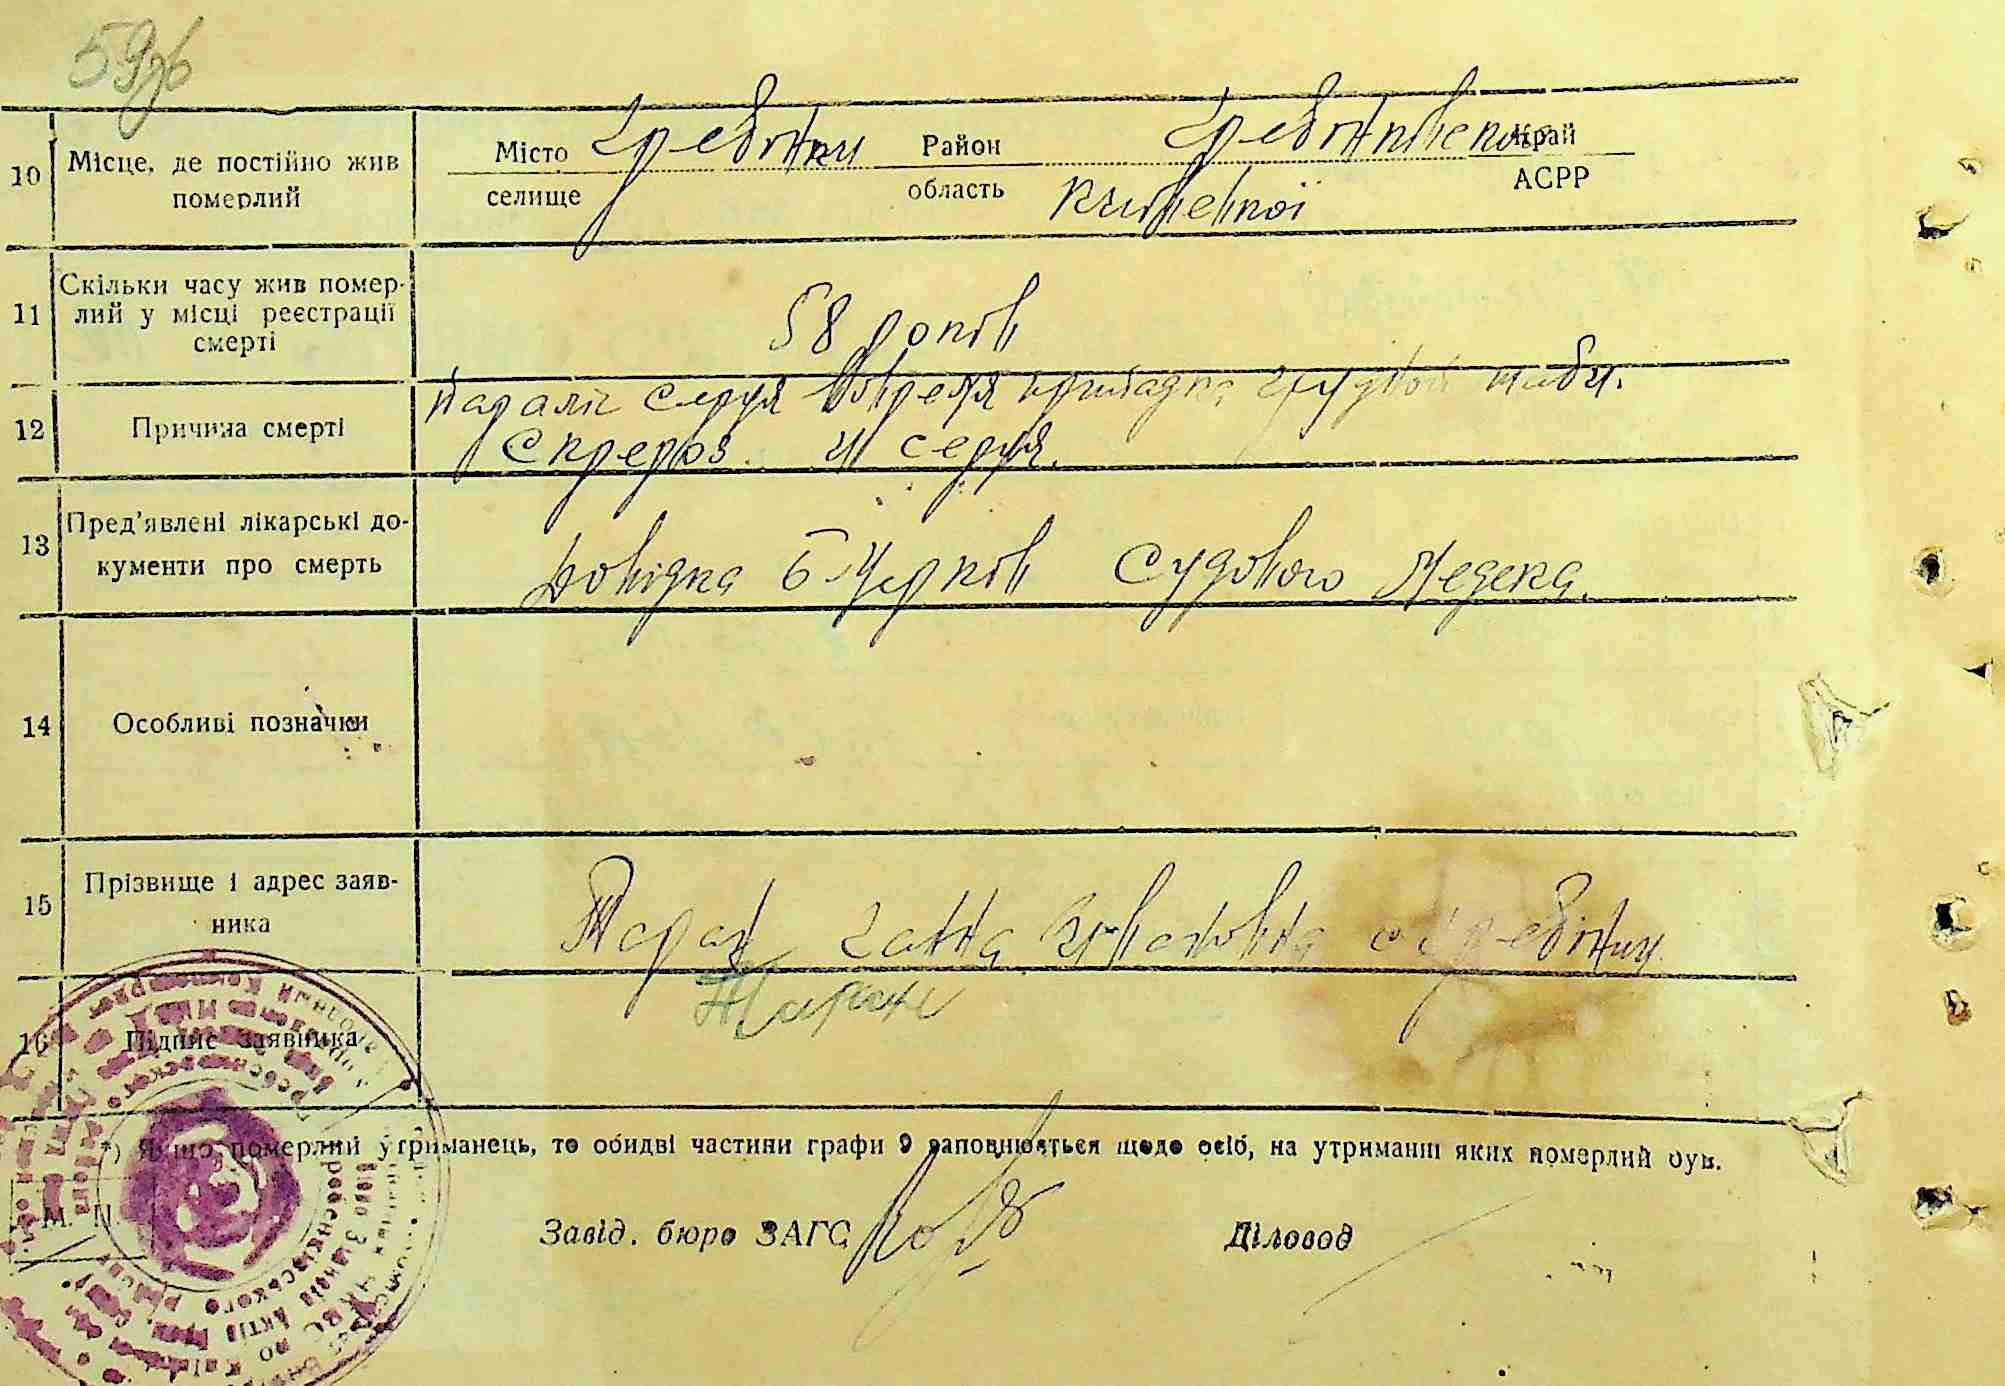 59зв
10 Місце, де постійно жив Місто Гребінки Район Гребінківського Край
померлий селище область Київської АСРР
11 Скільки часу жив помер-
лий у місці реєстрації
смерті
58 років
Параліч серця вовремя припадка грудной жаби.
12 Причина смерті
Склероз серця.
13 Пред'явлені лікарські до-
кументи про смерть
Довідка Б-Церків Судового Медека.
14 Особливі позначки
15 Прізвище і адрес заяв-
ника
Таран Ганна Ивановна с. Гребінки
16 Підпис заявника Таран
*) Якщо померлий утриманець, то обидві частини графи 9 заповнюються щодо осіб, на утриманні яких померлий був.
М. П. Завід. бюро ЗАГС Діловод